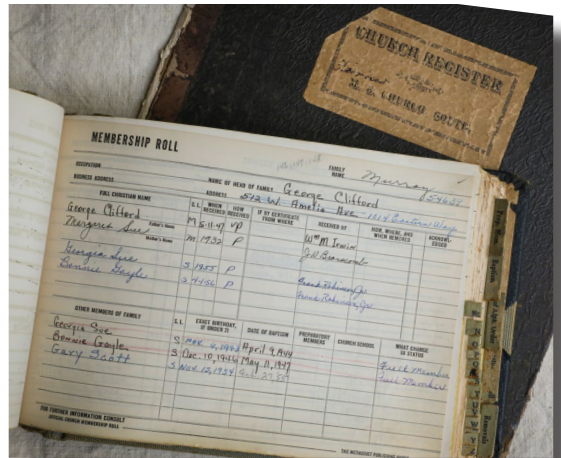 CHURCH REGISTER
M. E. CHURCH SOUTH
MEMBERSHIP ROLL
FAMILY NAME Murray
OCCUPATION
NAME OF HEAD OF FAMILY George Clifford
BUSINESS ADDRESS
ADDRESS 572 W. Amelia Ave
FULL CHRISTIAN NAME S.L. WHEN RECEIVED HOW RECEIVED IF BY CERTIFICATE FROM WHERE RECEIVED BY HOW, WHERE, AND WHEN REMOVED
George Clifford M 5-11-47 VP Wm M. Irwin
Father's Name
Margaret Sue M 1932 P
Mother's Name
Georgia Sue S 1955 P Frank Robinson Jr
Bonnie Gayle S 4-1-56 P Frank Robinson Jr
OTHER MEMBERS OF FAMILY S.L. EXACT BIRTHDAY, IF UNDER 21 DATE OF BAPTISM PREPARATORY MEMBERS CHURCH SCHOOL WHAT CHANGE IN STATUS
Georgia Sue S Nov. 4, 1943 April 9, 1944 Full Member
Bonnie Gayle S Dec. 10, 1946 May 11, 1947 Full Member
Gary Scott S Nov. 12, 1954
FOR FURTHER INFORMATION CONSULT
OFFICIAL CHURCH MEMBERSHIP ROLL
THE METHODIST PUBLISHING
Baptism
Records